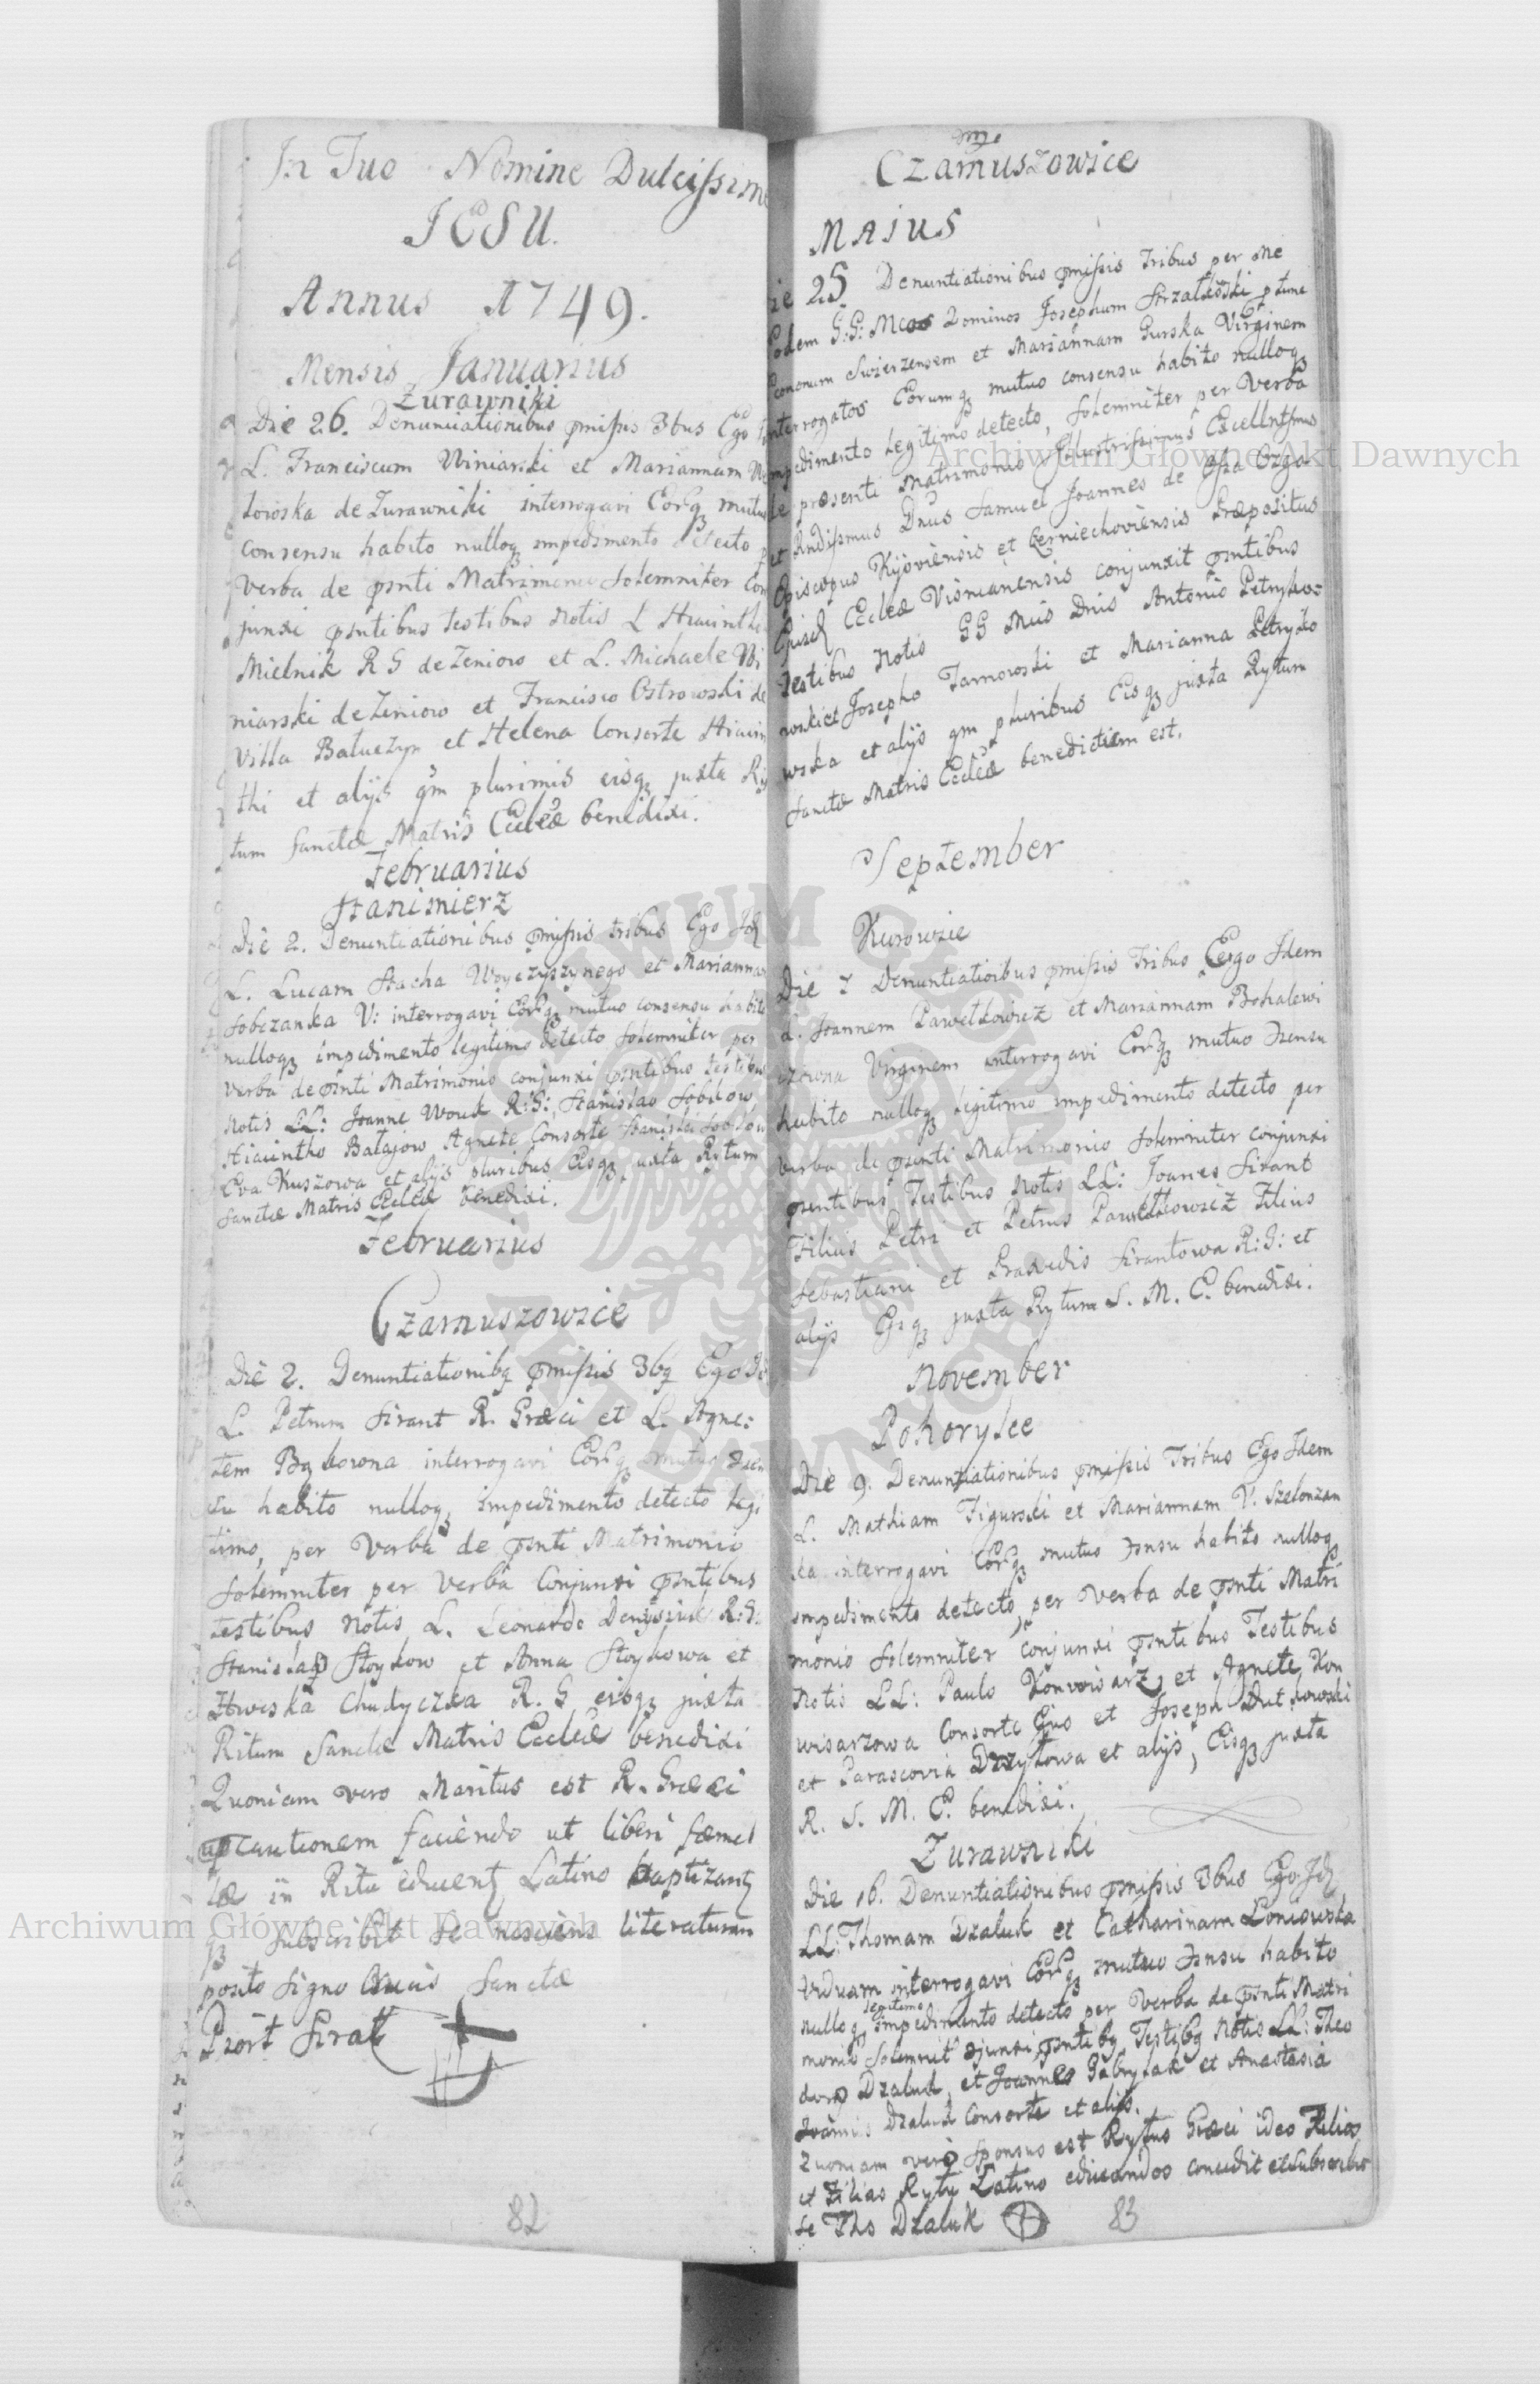 In Tuo Nomine Dulcissime
JESU.
Annus 1749.
Mensis Januarius
Zurawniki
Die 26. Denuntiationibus pmissis 3bus Ego
L. Franciscum Winiarski et Mariannam
de Zurawniki interrogavi Eorqz mutuo
consensu habito nulloqz impedimento detecto p
verba de psnti Matrimonio solemniter con
junxi psntibus testibus notis L Hiacintho
Mielnik R G de Zeniow et L. Michaele Wi
niarski de Zeniow et Francisco Ostrowski de
villa Batuczyn et Helena Consorte Hiacin
thi et alijs qm plurimis eisqz juxta Ri
tum Sanctæ Matris Eccleæ benedixi.
Februarius
Hanimierz
Die 2. Denuntiationibus pmissis tribus Ego Id
L. Lucam Stacha Woyczyszynego et Mariannam
Sobczanka V: interrogavi Eorqz mutuo consensu habito
nulloqz impedimento legitimo detecto solemniter per
verba de psnti Matrimonio conjunxi psntibus testibus
notis LL: Joanne Wouk R:G: Stanislao Sobkow
Hiacintho Batagow Agnete Consorte Stanislai Sobkow
Eva Kuszowa et alijs pluribus Eisqz juxta Rytum
Sanctæ Matris Eccleæ benedixi.
Februarius
Czarnuszowice
Die 2. Denuntiationibq pmissis 3bq Ego Id
L. Petrum Sirant R. Græci et L. Agne:
tem Bykowna interrogavi Eorqz mutuo
su habito nulloqz impedimento detecto legi
timo, per Verba de psnti Matrimonio
solemniter per verba Conjunxi psntibus
testibus notis L. Leonardo Denysiuk R:G:
Stanislao Stoykow et Anna Stoykowa et
Chudyczka R. G eisqz juxta
Ritum Sanctæ Matris Eccleæ benedixi
Quoniam vero Maritus est R. Græci
cautionem faciendo ut liberi fæmel
læ in Ritu Latino baptizant
subscribit se nesciens literaturam
posito signo Crucis Sanctæ
Piort Sirat
82
Czarnuszowice
Maius
Die 25 Denuntiationibus pmissis Tribus per Me
Eodem G:G: Mcos Dominos Josephum Strzałkowski
Swierzensem et Mariannam Gurska Virginem
interrogatos Eorumqz mutuo consensu habito nulloqz
impedimento legitimo detecto, solemniter per Verba
de præsenti Matrimonio Illustrissimus Excellntsmus
et Rndissmus Dnus Samuel Joannes de Ossa Ozga
Episcopus Kyoviensis et Czerniechoviensis Præpositus
Eccleæ Visnianensis conjunxit psntibus
testibus notis GG Mcis Dnis Antonio Petryko:
wski et Josepho Tarnowski et Marianna Petryko
wska et alijs qm pluribus Eisqz juxta Rytum
Sanctæ Matris Eccleæ benedictum est.
September
Kurowice
Die 7 Denuntiatioibus pmissis Tribus Ego Idem
L. Joannem Pawełkowicz et Mariannam
Virginem interrogavi Eorqz mutuo
habito nulloqz legitimo impedimento detecto per
verba de psenti Matrimonio solemniter conjunxi
psentibus Testibus notis LL: Joanes Sirant
Filius Petri et Petrus Pawełkowicz Filius
Sebastiani et Praxedis Sirantowa R:G: et
alijs Eisqz juxta Rytum S. M. E. benedixi.
November
Pohorylce
Die 9. Denuntiationibus pmissis Tribus Ego Idem
L. Mathiam Figurski et Mariannam V. Szelonzan
ka interrogavi Eorqz mutuo habito nulloqz
impedimento detecto, per Verba de psnti Matri
monio solemniter, conjunxi psntibus Testibus
notis LL: Paulo Konwisarz et Agnete Kon
wisarzowa Consorte Eius et Joseph Dutkowski
et Parascovia Drzytowa et alijs, Eisqz juxta
R. S. M. E. benedixi.
Zurawniki
Die 16. Denuntiationibus pmissis 3bus Ego Id
LL: Thomam Dzaluk et Catharinam
Viduam interrogavi Eorqz mutuo habito
nulloqz legitimo impedimento detecto per Verba de psnti Matri
monio Testibq notis LL: Theo
doro Dzaluk, et Joannes Gabrylak et Anastasia
Joannis Dzaluk consorte et alijs.
Quoniam vero sponsus est Rytus Græci ideo Filios
et Filias Rytu Latino educandos concedit et subscribit
se Tho Dzaluk
83
Archiwum Główne Akt Dawnych
Archiwum Główne Akt Dawnych
ARCHIWUM GŁÓWNE AKT DAWNYCH